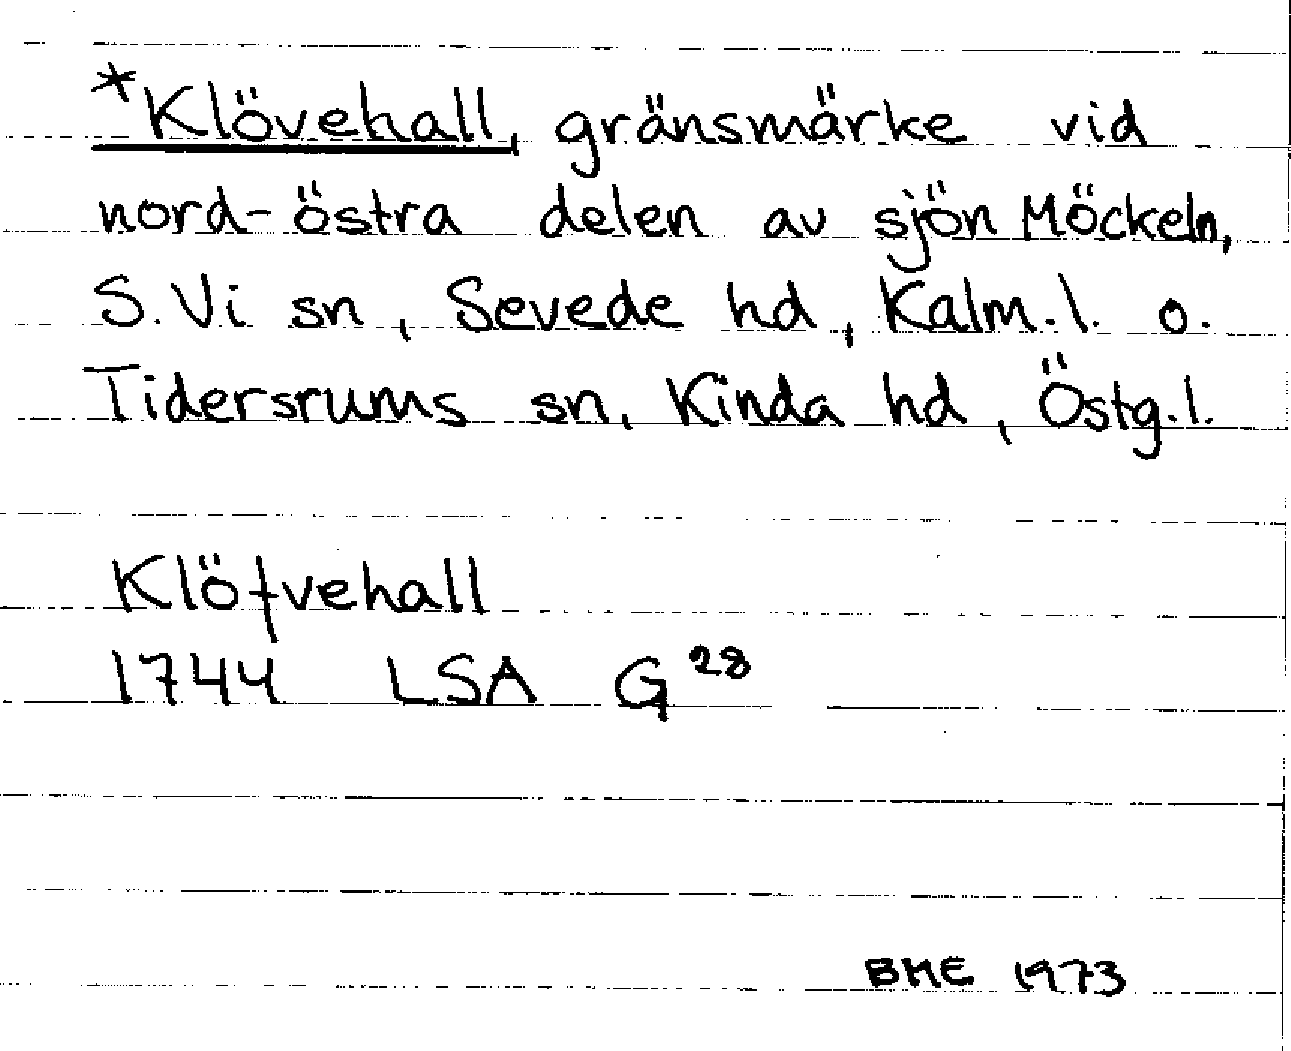 *Klövehall, gränsmärke vid
nord-östra delen av sjön Möckeln,
S. Vi sn, Sevede hd, Kalm. l. o.
Tidersrums sn, Kinda hd, Östg. l.
Klöfvehall
1744 LSA G 28
BME 1973